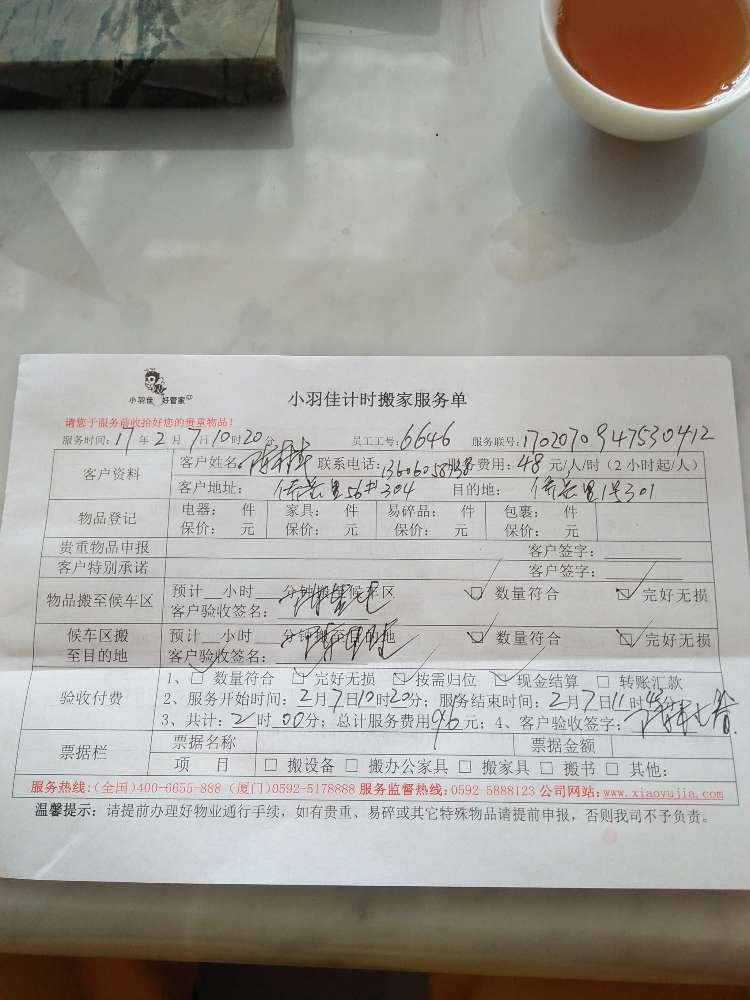 小羽佳 好管家
小羽佳计时搬家服务单
请您于服务前收拾好您的贵重物品！
服务时间：17年2月7日10时20分 员工工号：6646 服务联号：1702070947530412
客户资料 客户姓名 联系电话：13606058938 服务费用：48元/人/时（2小时起/人）
客户地址： 56#304 目的地： 1号301
物品登记 电器： 件 家具： 件 易碎品： 件 包裹： 件
保价： 元 保价： 元 保价： 元 保价： 元
贵重物品申报 客户签字：
客户特别承诺 客户签字：
物品搬至候车区 预计__小时__分钟搬至候车区 ☑ 数量符合 ☑ 完好无损
客户验收签名：
候车区搬至目的地 预计__小时__分钟搬至目的地 ☑ 数量符合 ☑ 完好无损
客户验收签名：
验收付费 1、☑ 数量符合 ☑ 完好无损 ☑ 按需归位 ☑ 现金结算 □ 转账汇款
2、服务开始时间：2月7日10时20分；服务结束时间：2月7日11时45分
3、共计：2时00分；总计服务费用96元；4、客户验收签字：
票据栏 票据名称 票据金额
项 目 □ 搬设备 □ 搬办公家具 □ 搬家具 □ 搬书 □ 其他：
服务热线:(全国)400-6655-888 (厦门)0592-5178888 服务监督热线:0592-5888123 公司网站:www.xiaoyujia.com
温馨提示：请提前办理好物业通行手续，如有贵重、易碎或其它特殊物品请提前申报，否则我司不予负责。